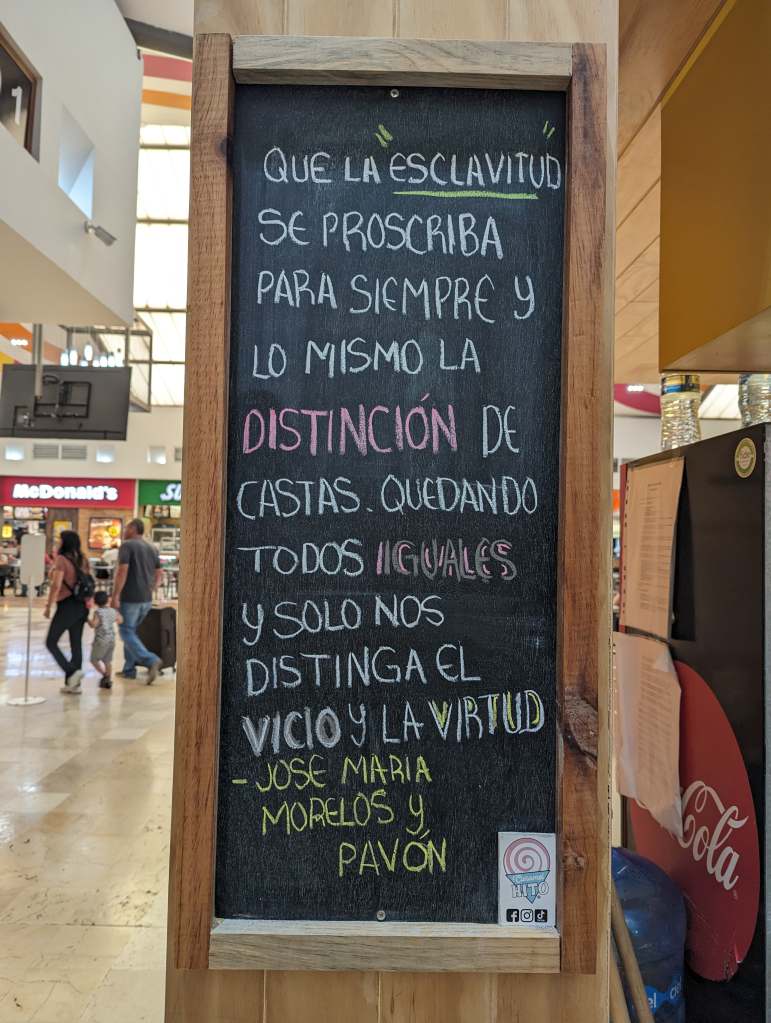 QUE LA "ESCLAVITUD"
SE PROSCRIBA
PARA SIEMPRE Y
LO MISMO LA
DISTINCIÓN DE
CASTAS. QUEDANDO
TODOS IGUALES
Y SOLO NOS
DISTINGA EL
VICIO Y LA VIRTUD
- JOSE MARIA
MORELOS Y
PAVÓN
HITO
McDonald's
Coca-Cola
1